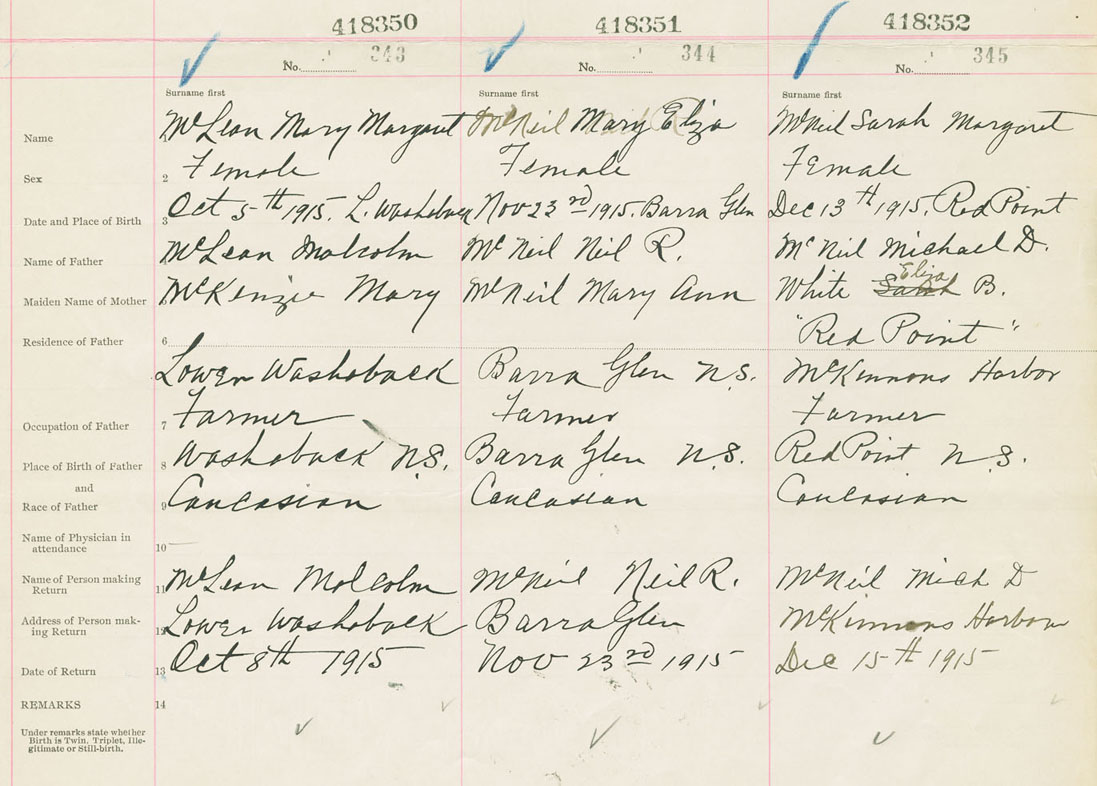 418350 418351 418352
No. 343 No. 344 No. 345
Surname first Surname first Surname first
Name 1 McLean Mary Margaret McNeil Mary Eliza McNeil Sarah Margaret
Sex 2 Female Female Female
Date and Place of Birth 3 Oct 5th 1915. L. Washaback Nov 23rd 1915. Barra Glen Dec 13th 1915. Red Point
Name of Father McLean Malcolm McNeil Neil R. McNeil Michael D.
Eliza
Maiden Name of Mother McKenzie Mary McNeil Mary Ann White Sarah B.
"Red Point"
Residence of Father 6
Lower Washaback Barra Glen N.S. McKinnons Harbor
Occupation of Father 7 Farmer Farmer Farmer
Place of Birth of Father 8 Washaback N.S. Barra Glen N.S. Red Point N.S.
and
Race of Father 9 Caucasian Caucasian Caucasian
Name of Physician in
attendance 10
Name of Person making
Return 11 McLean Malcolm McNeil Neil R. McNeil Mich D
Address of Person mak-
ing Return 12 Lower Washaback Barra Glen McKinnons Harbour
Date of Return 13 Oct 8th 1915 Nov 23rd 1915 Dec 15th 1915
REMARKS 14
Under remarks state whether
Birth is Twin, Triplet, Ille-
gitimate or Still-birth.